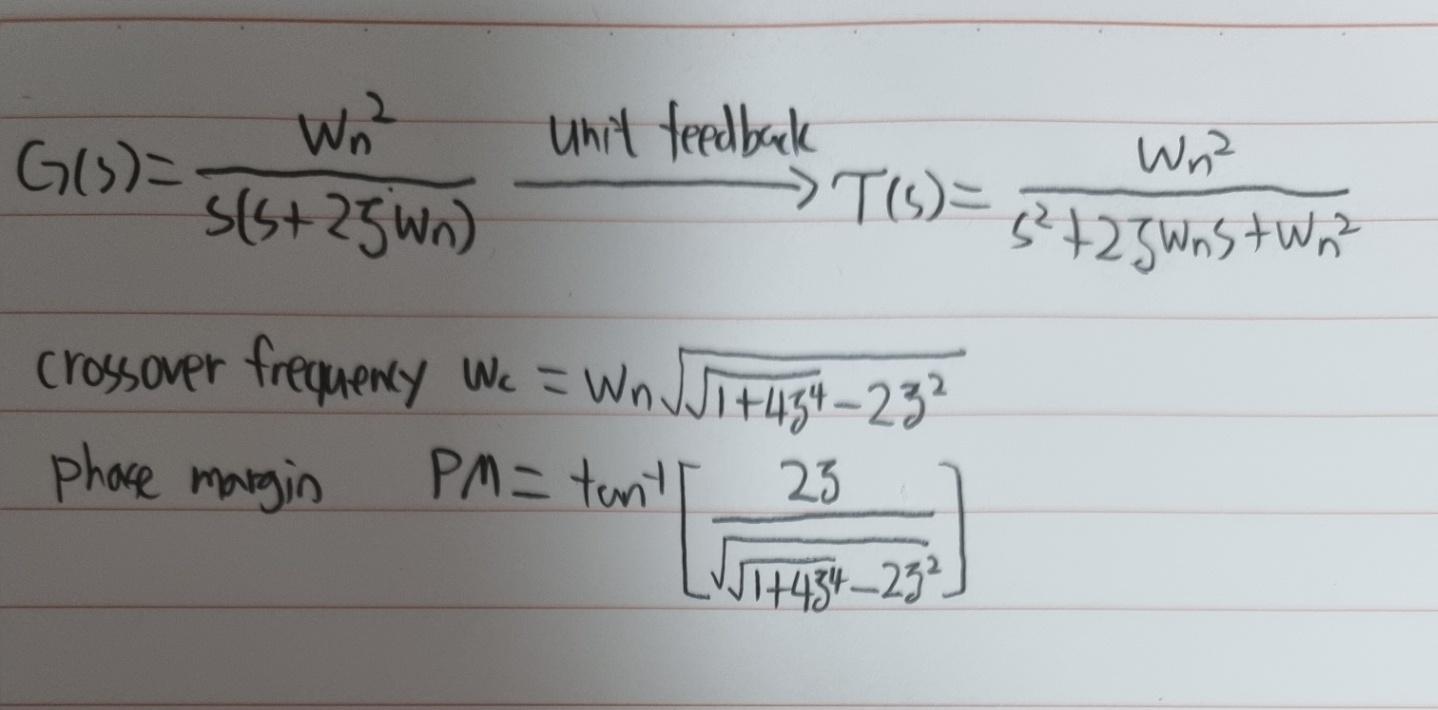 G(s)= Wn² / s(s+2ζWn) unit feedback → T(s)= Wn² / s²+2ζWns+Wn²
crossover frequency Wc = Wn√(√(1+4ζ⁴)-2ζ²)
phase margin PM = tan⁻¹[2ζ / √(√(1+4ζ⁴)-2ζ²)]